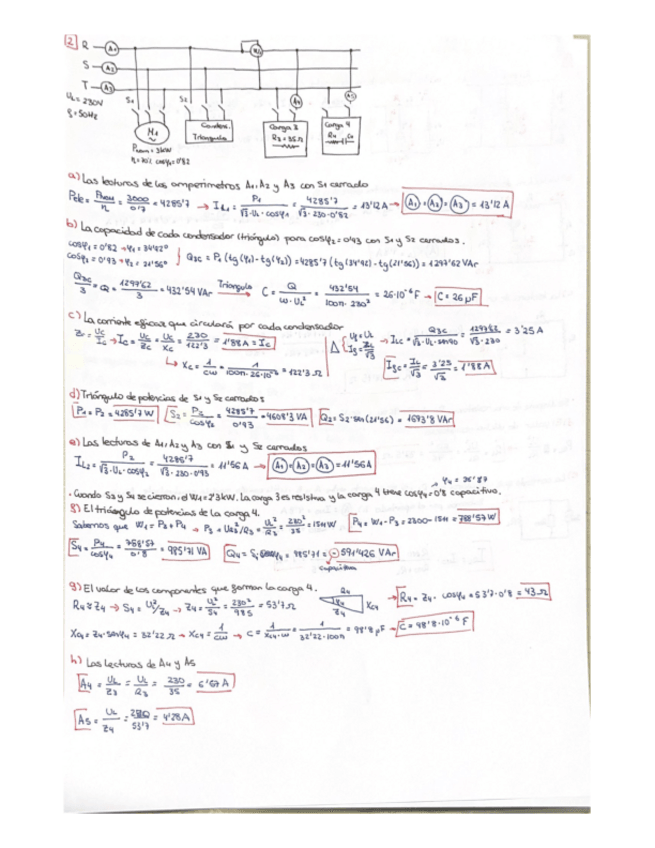 2 R A1 W1
S A2
T A3
UL = 230V
f = 50Hz
S1 S2 A4 A5
M1
Conden. Triángulo
Carga 3
R3 = 35Ω
Carga 4
R4 C4
Pnom = 3kW
η = 70% cosφ = 0'82
a) Las lecturas de los amperímetros A1, A2 y A3 con S1 cerrado
Pele = Pnom/η = 3000/0'7 = 4285'7 → IL1 = P1/(√3·UL·cosφ1) = 4285'7/(√3·230·0'82) = 13'12A → A1 = A2 = A3 = 13'12 A
b) La capacidad de cada condensador (triángulo) para cosφ2 = 0'93 con S1 y S2 cerrados.
cosφ1 = 0'82 → φ1 = 34'92°
cosφ2 = 0'93 → φ2 = 21'56° } Q3C = P1 (tg(φ1) - tg(φ2)) = 4285'7 (tg(34'92) - tg(21'56)) = 1297'62 VAr
Q3C/3 = Q = 1297'62/3 = 432'54 VAr Triángulo → C = Q/(ω·UL²) = 432'54/(100π·230²) = 26·10⁻⁶ F → C = 26 μF
c) La corriente eficaz que circulará por cada condensador
Zc = Uc/Ic → Ic = Uc/Zc = UL/Xc = 230/122'3 = 1'88A = Ic
Δ { Uf = UL
If = IL/√3 → ILC = Q3C/(√3·UL·sen90) = 1297'62/(√3·230) = 3'25 A
Xc = 1/(Cω) = 1/(100π·26·10⁻⁶) = 122'3 Ω
IfC = IL/√3 = 3'25/√3 = 1'88 A
d) Triángulo de potencias de S1 y S2 cerrados
P1 = P2 = 4285'7 W S2 = P2/cosφ2 = 4285'7/0'93 = 4608'3 VA Q2 = S2·sen(21'56) = 1693'8 VAr
e) Las lecturas de A1, A2 y A3 con S1 y S2 cerrados
IL2 = P2/(√3·UL·cosφ2) = 4285'7/(√3·230·0'93) = 11'56 A → A1 = A2 = A3 = 11'56 A
→ φ4 = 36'87
· Cuando S3 y S4 se cierran, el W1 = 2'3kW. La carga 3 es resistiva y la carga 4 tiene cosφ4 = 0'8 capacitivo.
f) El triángulo de potencias de la carga 4.
Sabemos que W1 = P3 + P4 → P3 = UR3²/R3 = UL²/R3 = 230²/35 = 1511 W P4 = W1 - P3 = 2300 - 1511 = 788'57 W
S4 = P4/cosφ4 = 788'57/0'8 = 985'71 VA Q4 = S4·senφ4 = 985'71 = -591'426 VAr
capacitiva
g) El valor de los componentes que forman la carga 4.
→ S4 = UL²/Z4 → Z4 = UL²/S4 = 230²/985 = 53'7 Ω R4 φ4 Z4 XC4 → R4 = Z4·cosφ4 = 53'7·0'8 = 43 Ω
XC4 = Z4·senφ4 = 32'22 Ω → XC4 = 1/(Cω) → C = 1/(XC4·ω) = 1/(32'22·100π) = 98'8 μF → C = 98'8·10⁻⁶ F
h) Las lecturas de A4 y A5
A4 = UL/Z3 = UL/R3 = 230/35 = 6'57 A
A5 = UL/Z4 = 230/53'7 = 4'28 A